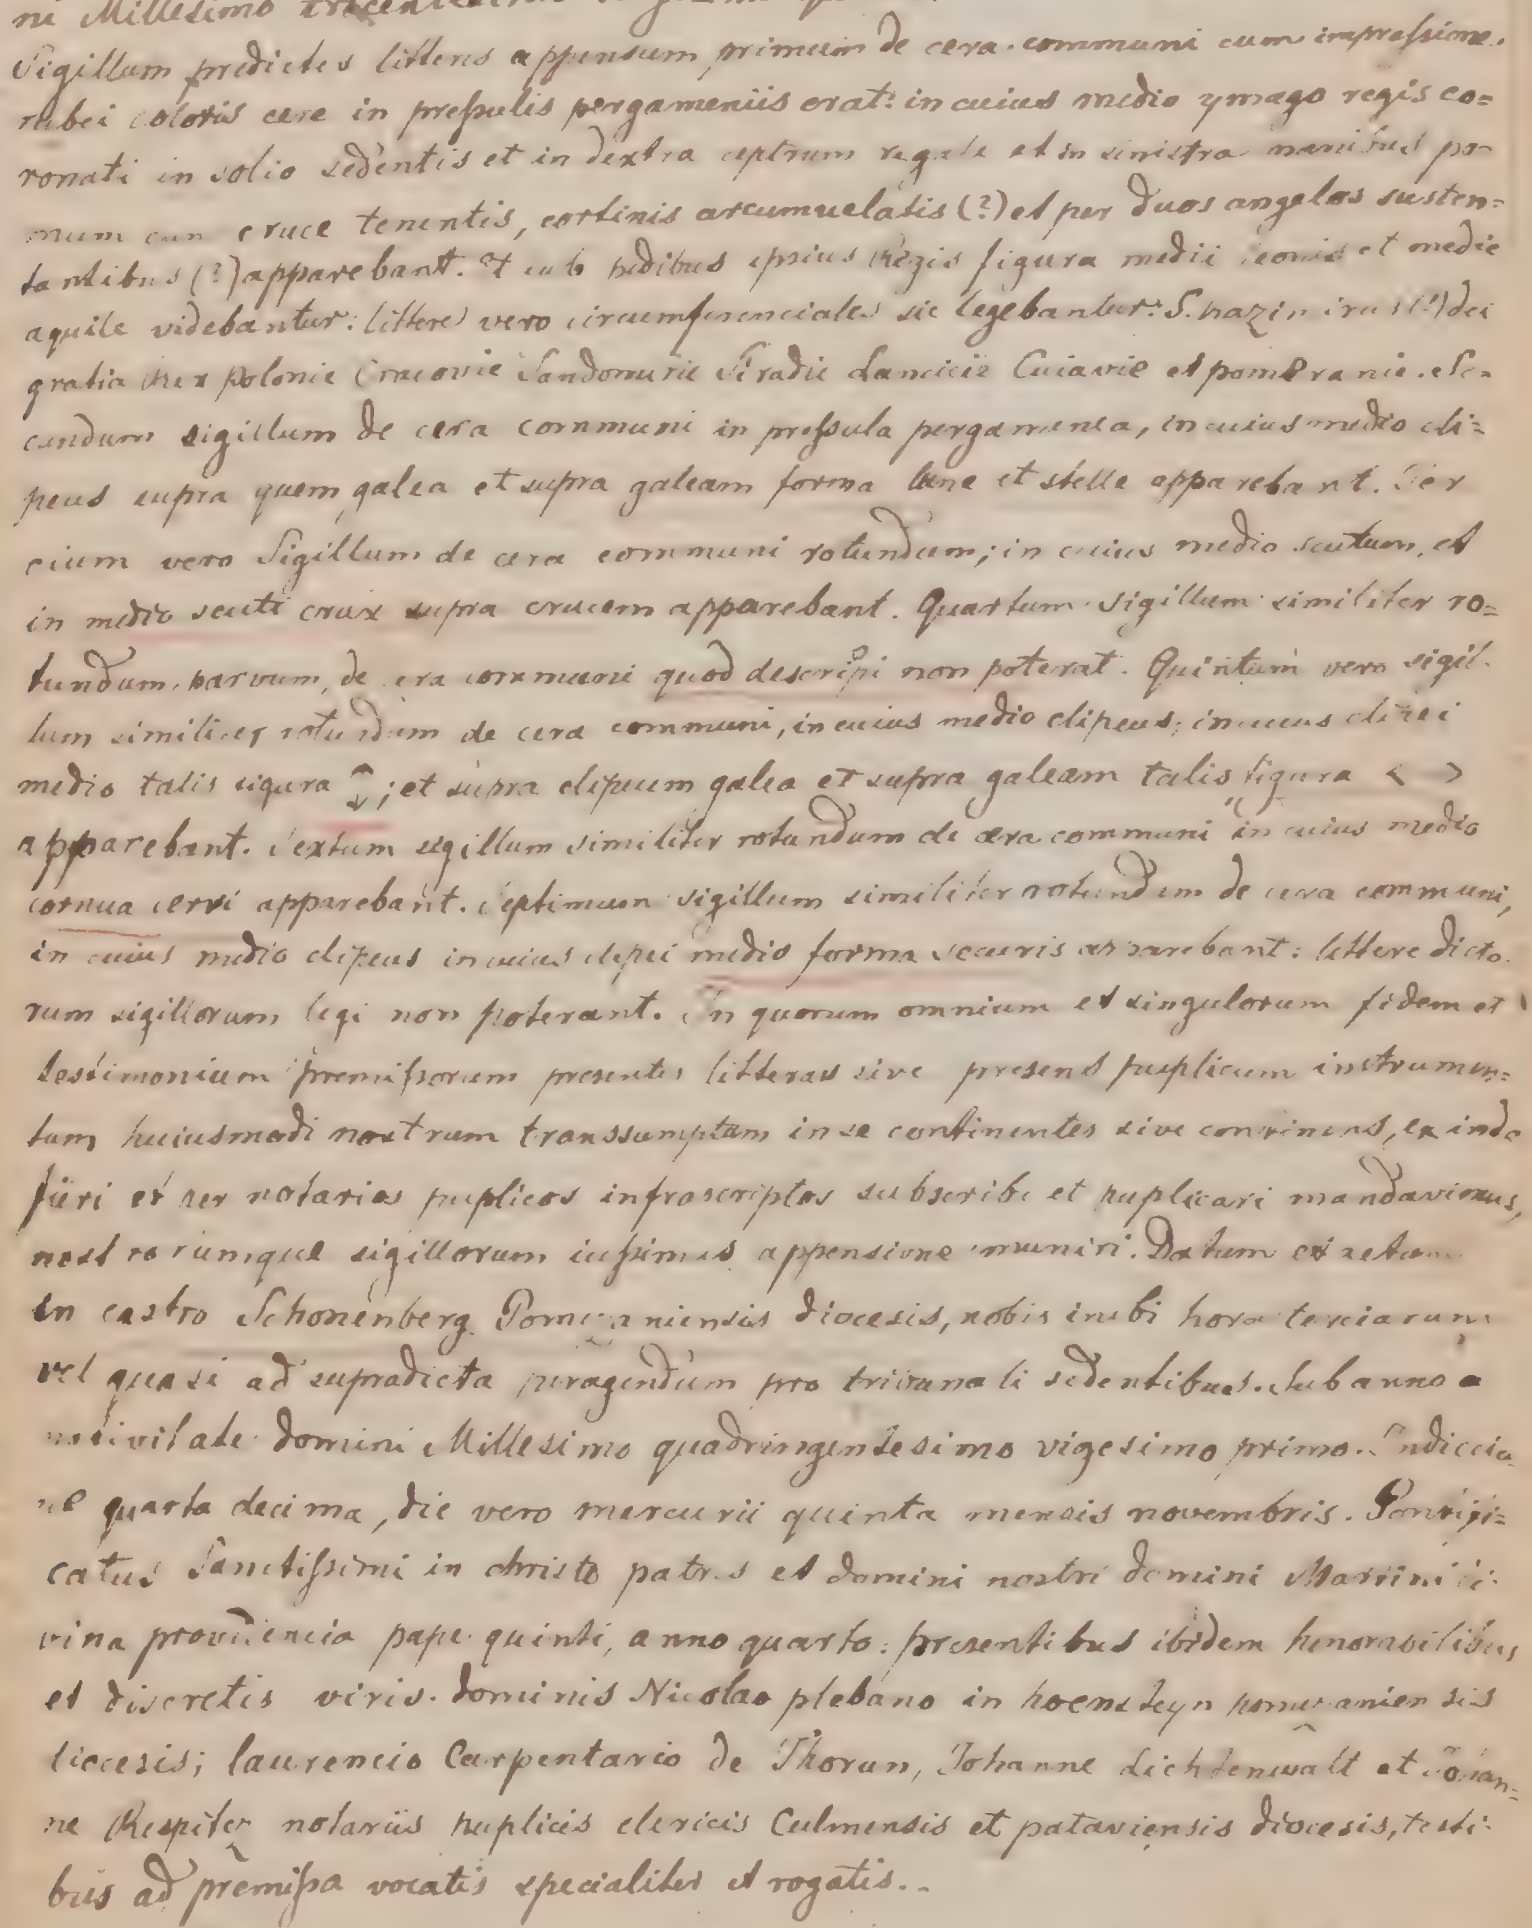 ni Millesimo
Sigillum predictes litteris appensum primum de cera communi cum impressione
rubei coloris cere in pressulis pergameniis erat: in cuius medio ymago regis co=
ronati in solio sedentis et in dextra ceptrum regale et in sinistra manibus po-
mum cum cruce tenentis, cortinis arcumuelatis (?) et per duos angelos susten=
tantibus (?) apparebant. Et sub pedibus ipsius Regis figura medii leonis et medie
aquile videbantur: littere vero circumferenciales sic legebantur: S. hazimirus (?) dei
gratia Rex Polonie Cracovie Sandomirie Siradie Lancicie Cuiavie et pomeranie. Se-
cundum sigillum de cera communi in pressula pergamenea, in cuius medio cli=
peus supra quem galea et supra galeam forma lune et stelle apparebant. Ter
cium vero Sigillum de cera communi rotundum; in cuius medio scutum, et
in medio scuti crux supra crucem apparebant. Quartum sigillum similiter ro=
tundum, parvum, de cera communi quod describi non poterat. Quintum vero sigil-
lum similiter rotundum de cera communi, in cuius medio clipeus, in cuius clipei
medio talis figura ; et supra clipeum galea et supra galeam talis figura < >
apparebant. Sextum sigillum similiter rotundum de cera communi in cuius medio
cornua cervi apparebant. Septimum sigillum similiter rotundum de cera communi,
in cuius medio clipeus in cuius clipei medio forma securis apparebant: littere dicto-
rum sigillorum legi non poterant. In quorum omnium et singulorum fidem et
testimonium premissorum presentes litteras sive presens puplicum instrumen=
tum huiusmodi nostrum transsumptum in se continentes sive continens, ex inde
fieri et per notarios puplicos infrascriptos subscribi et puplicari mandavimus,
nostrorumque sigillorum iussimus appensione muniri. Datum et actum
in castro Schonenberg Pomezaniensis diocesis, nobis inibi hora terciarum
vel quasi ad supradicta peragendum pro tribunali sedentibus. Sub anno a
nativitate domini Millesimo quadringentesimo vigesimo primo. Indiccio-
ne quarta decima, die vero mercurii quinta mensis novembris. Pontifi=
catus Sanctissimi in christo patris et domini nostri domini Martini di-
vina providencia pape quinti, anno quarto: presentibus ibidem honorabilibus
et discretis viris. dominis Nicolao plebano in hoensteyn pomezaniensis
diocesis; laurencio Carpentario de Thorun, Johanne Lichtenwalt et Johan-
ne Respiter notariis puplicis clericis Culmensis et pataviensis diocesis, testi-
bus ad premissa vocatis specialiter et rogatis..